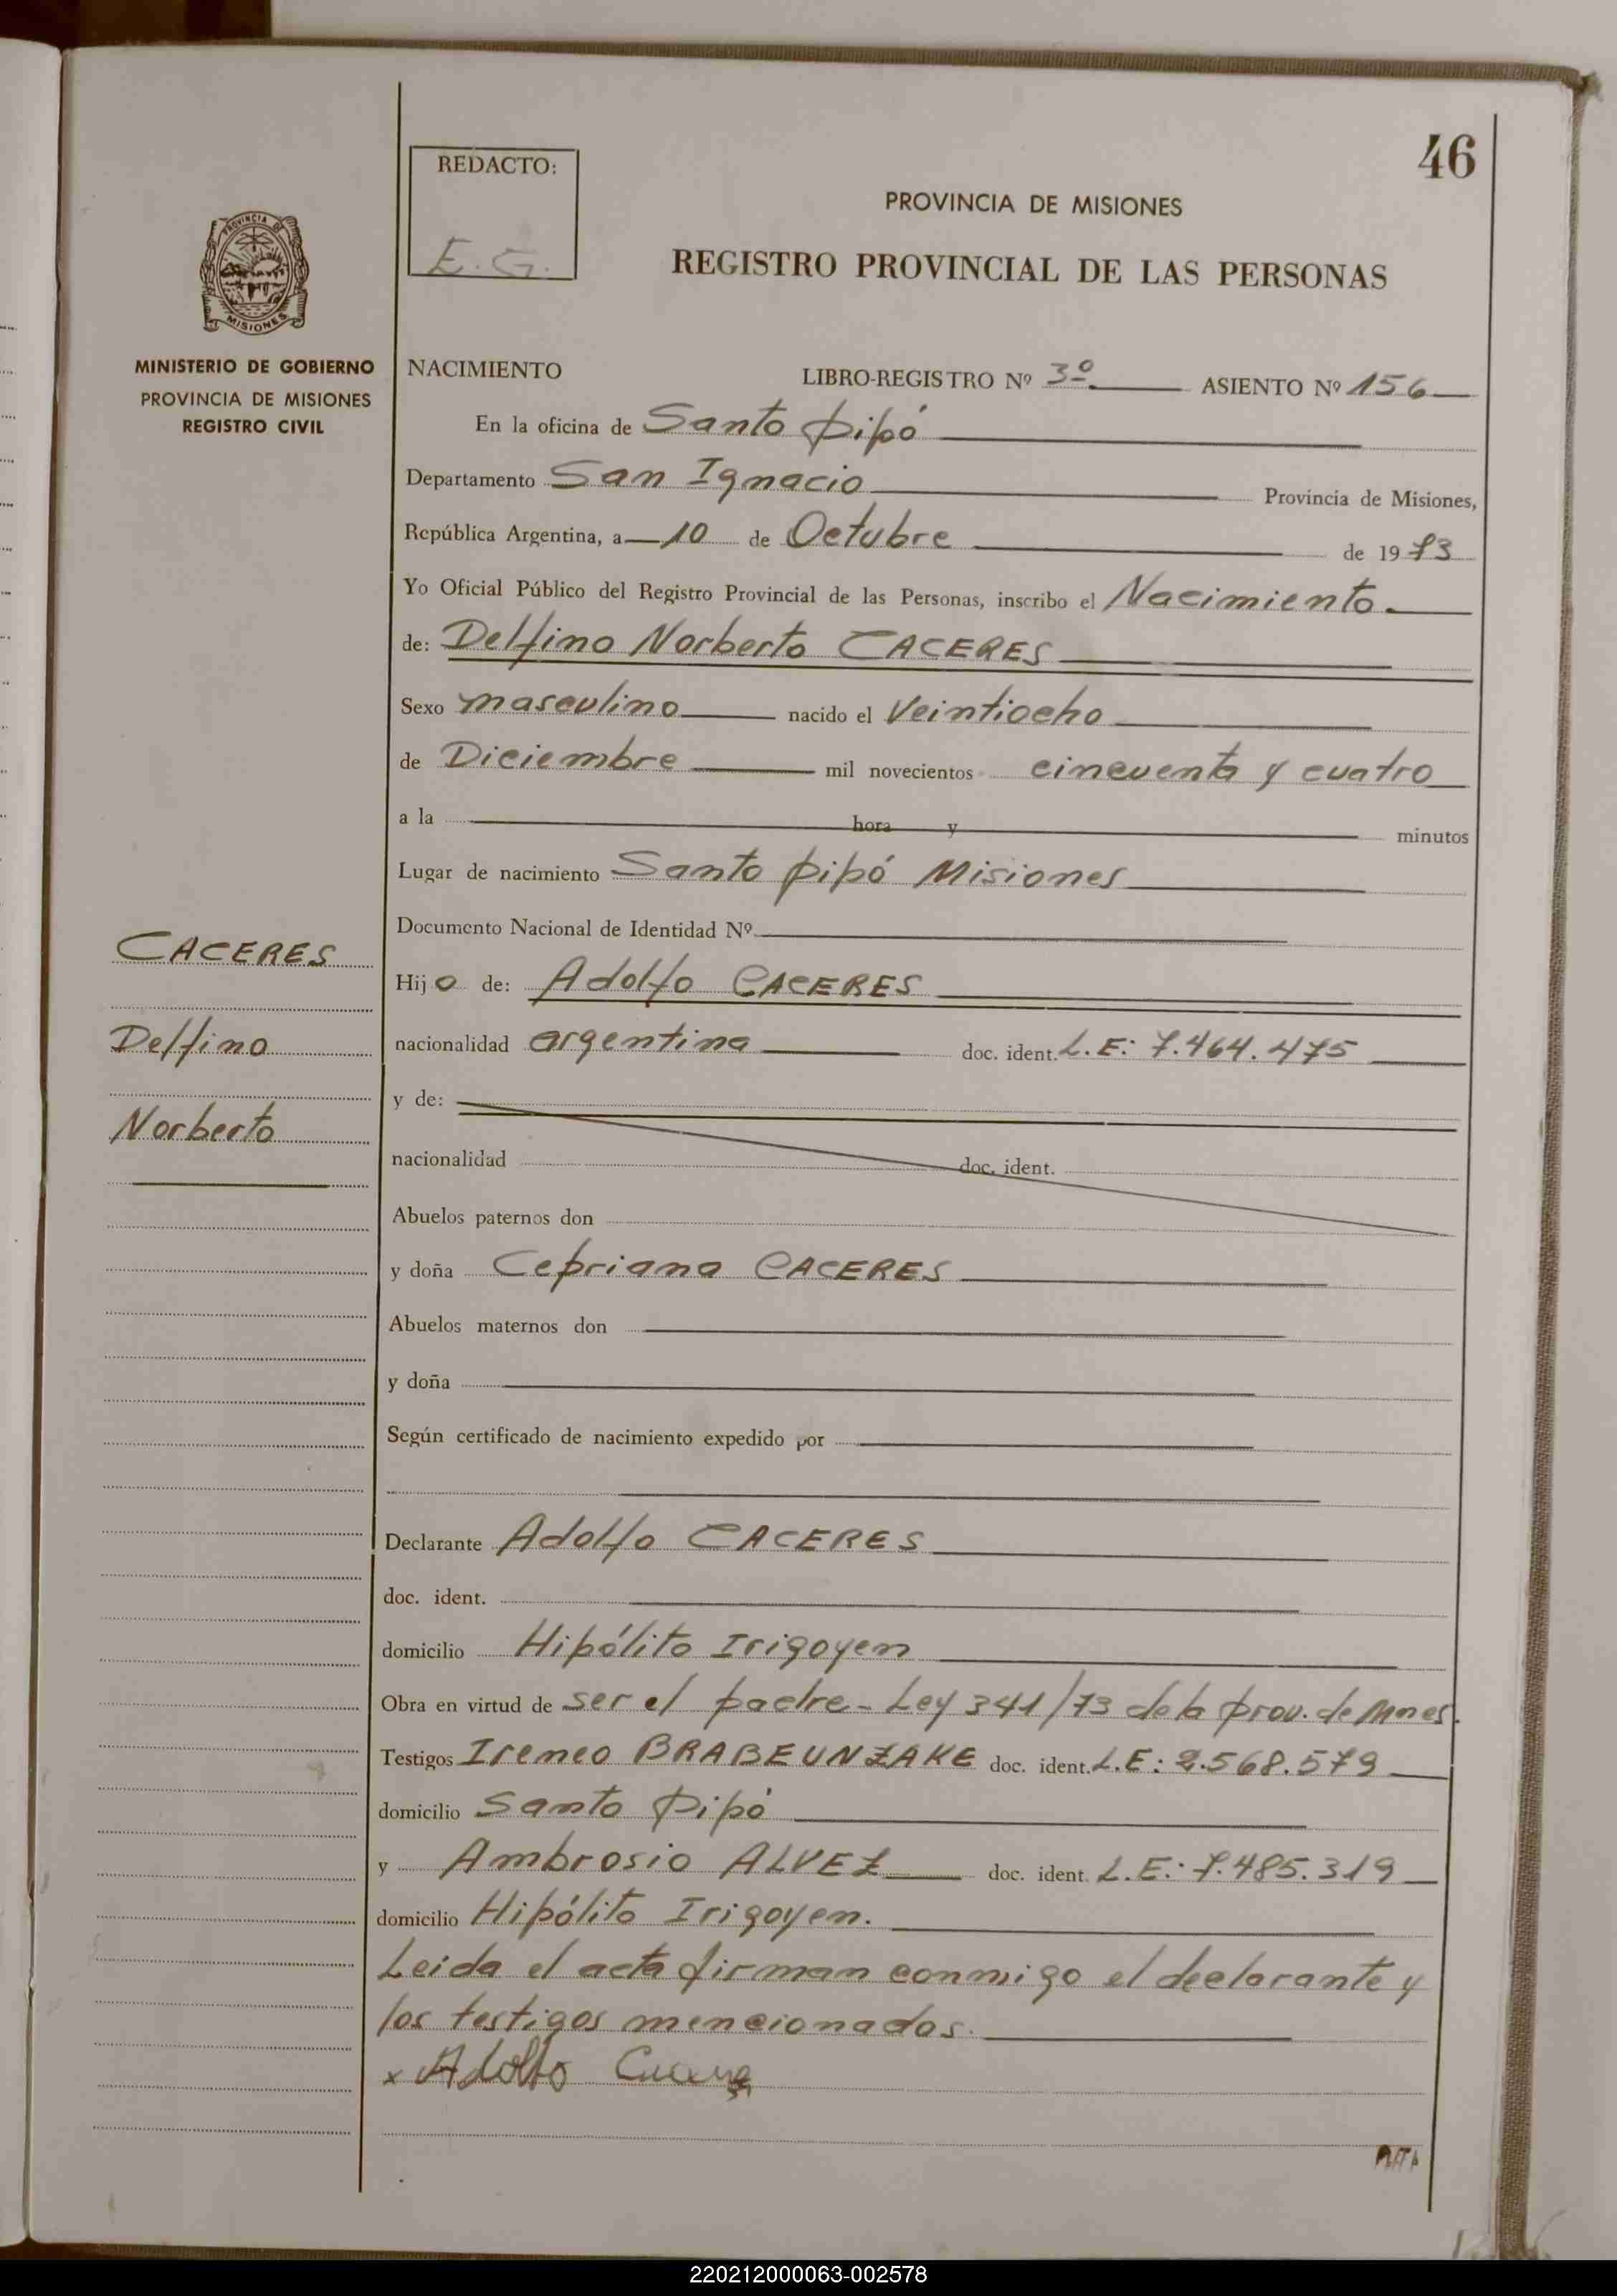 46
REDACTO:
E. G.
PROVINCIA DE MISIONES
REGISTRO PROVINCIAL DE LAS PERSONAS
PROVINCIA DE
MISIONES
MINISTERIO DE GOBIERNO
PROVINCIA DE MISIONES
REGISTRO CIVIL
NACIMIENTO LIBRO-REGISTRO Nº 3º ASIENTO Nº 156
En la oficina de Santo Pipó
Departamento San Ignacio Provincia de Misiones,
República Argentina, a 10 de Octubre de 1973
Yo Oficial Público del Registro Provincial de las Personas, inscribo el Nacimiento.
de: Delfino Norberto CACERES
Sexo masculino nacido el Veintiocho
de Diciembre mil novecientos cincuenta y cuatro
a la hora y minutos
Lugar de nacimiento Santo Pipó Misiones
Documento Nacional de Identidad Nº
CACERES
Delfino
Norberto
Hijo de: Adolfo CACERES
nacionalidad argentina doc. ident. L.E: 7.464.475
y de:
nacionalidad doc. ident.
Abuelos paternos don
y doña Cepriana CACERES
Abuelos maternos don
y doña
Según certificado de nacimiento expedido por
Declarante Adolfo CACERES
doc. ident.
domicilio Hipólito Irigoyen
Obra en virtud de ser el padre - Ley 341/73 de la Prov. de Mnes.
Testigos Ireneo BRABEUNZAKE doc. ident. L.E: 2.568.579
domicilio Santo Pipó
y Ambrosio ALVEZ doc. ident. L.E: 7.485.319
domicilio Hipólito Irigoyen.
Leida el acta firman conmigo el declarante y
los testigos mencionados.
x Adolfo
220212000063-002578